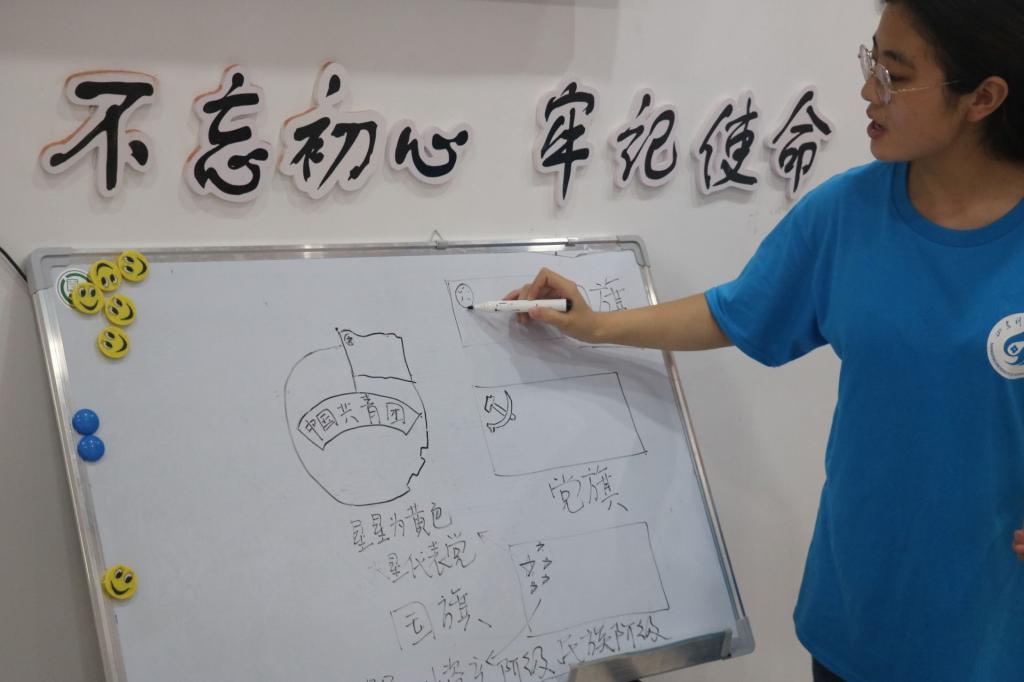 不忘初心 牢记使命
旗
中国共青团
党旗
星星为黄色
大星代表党
国旗
阶级 民族阶级